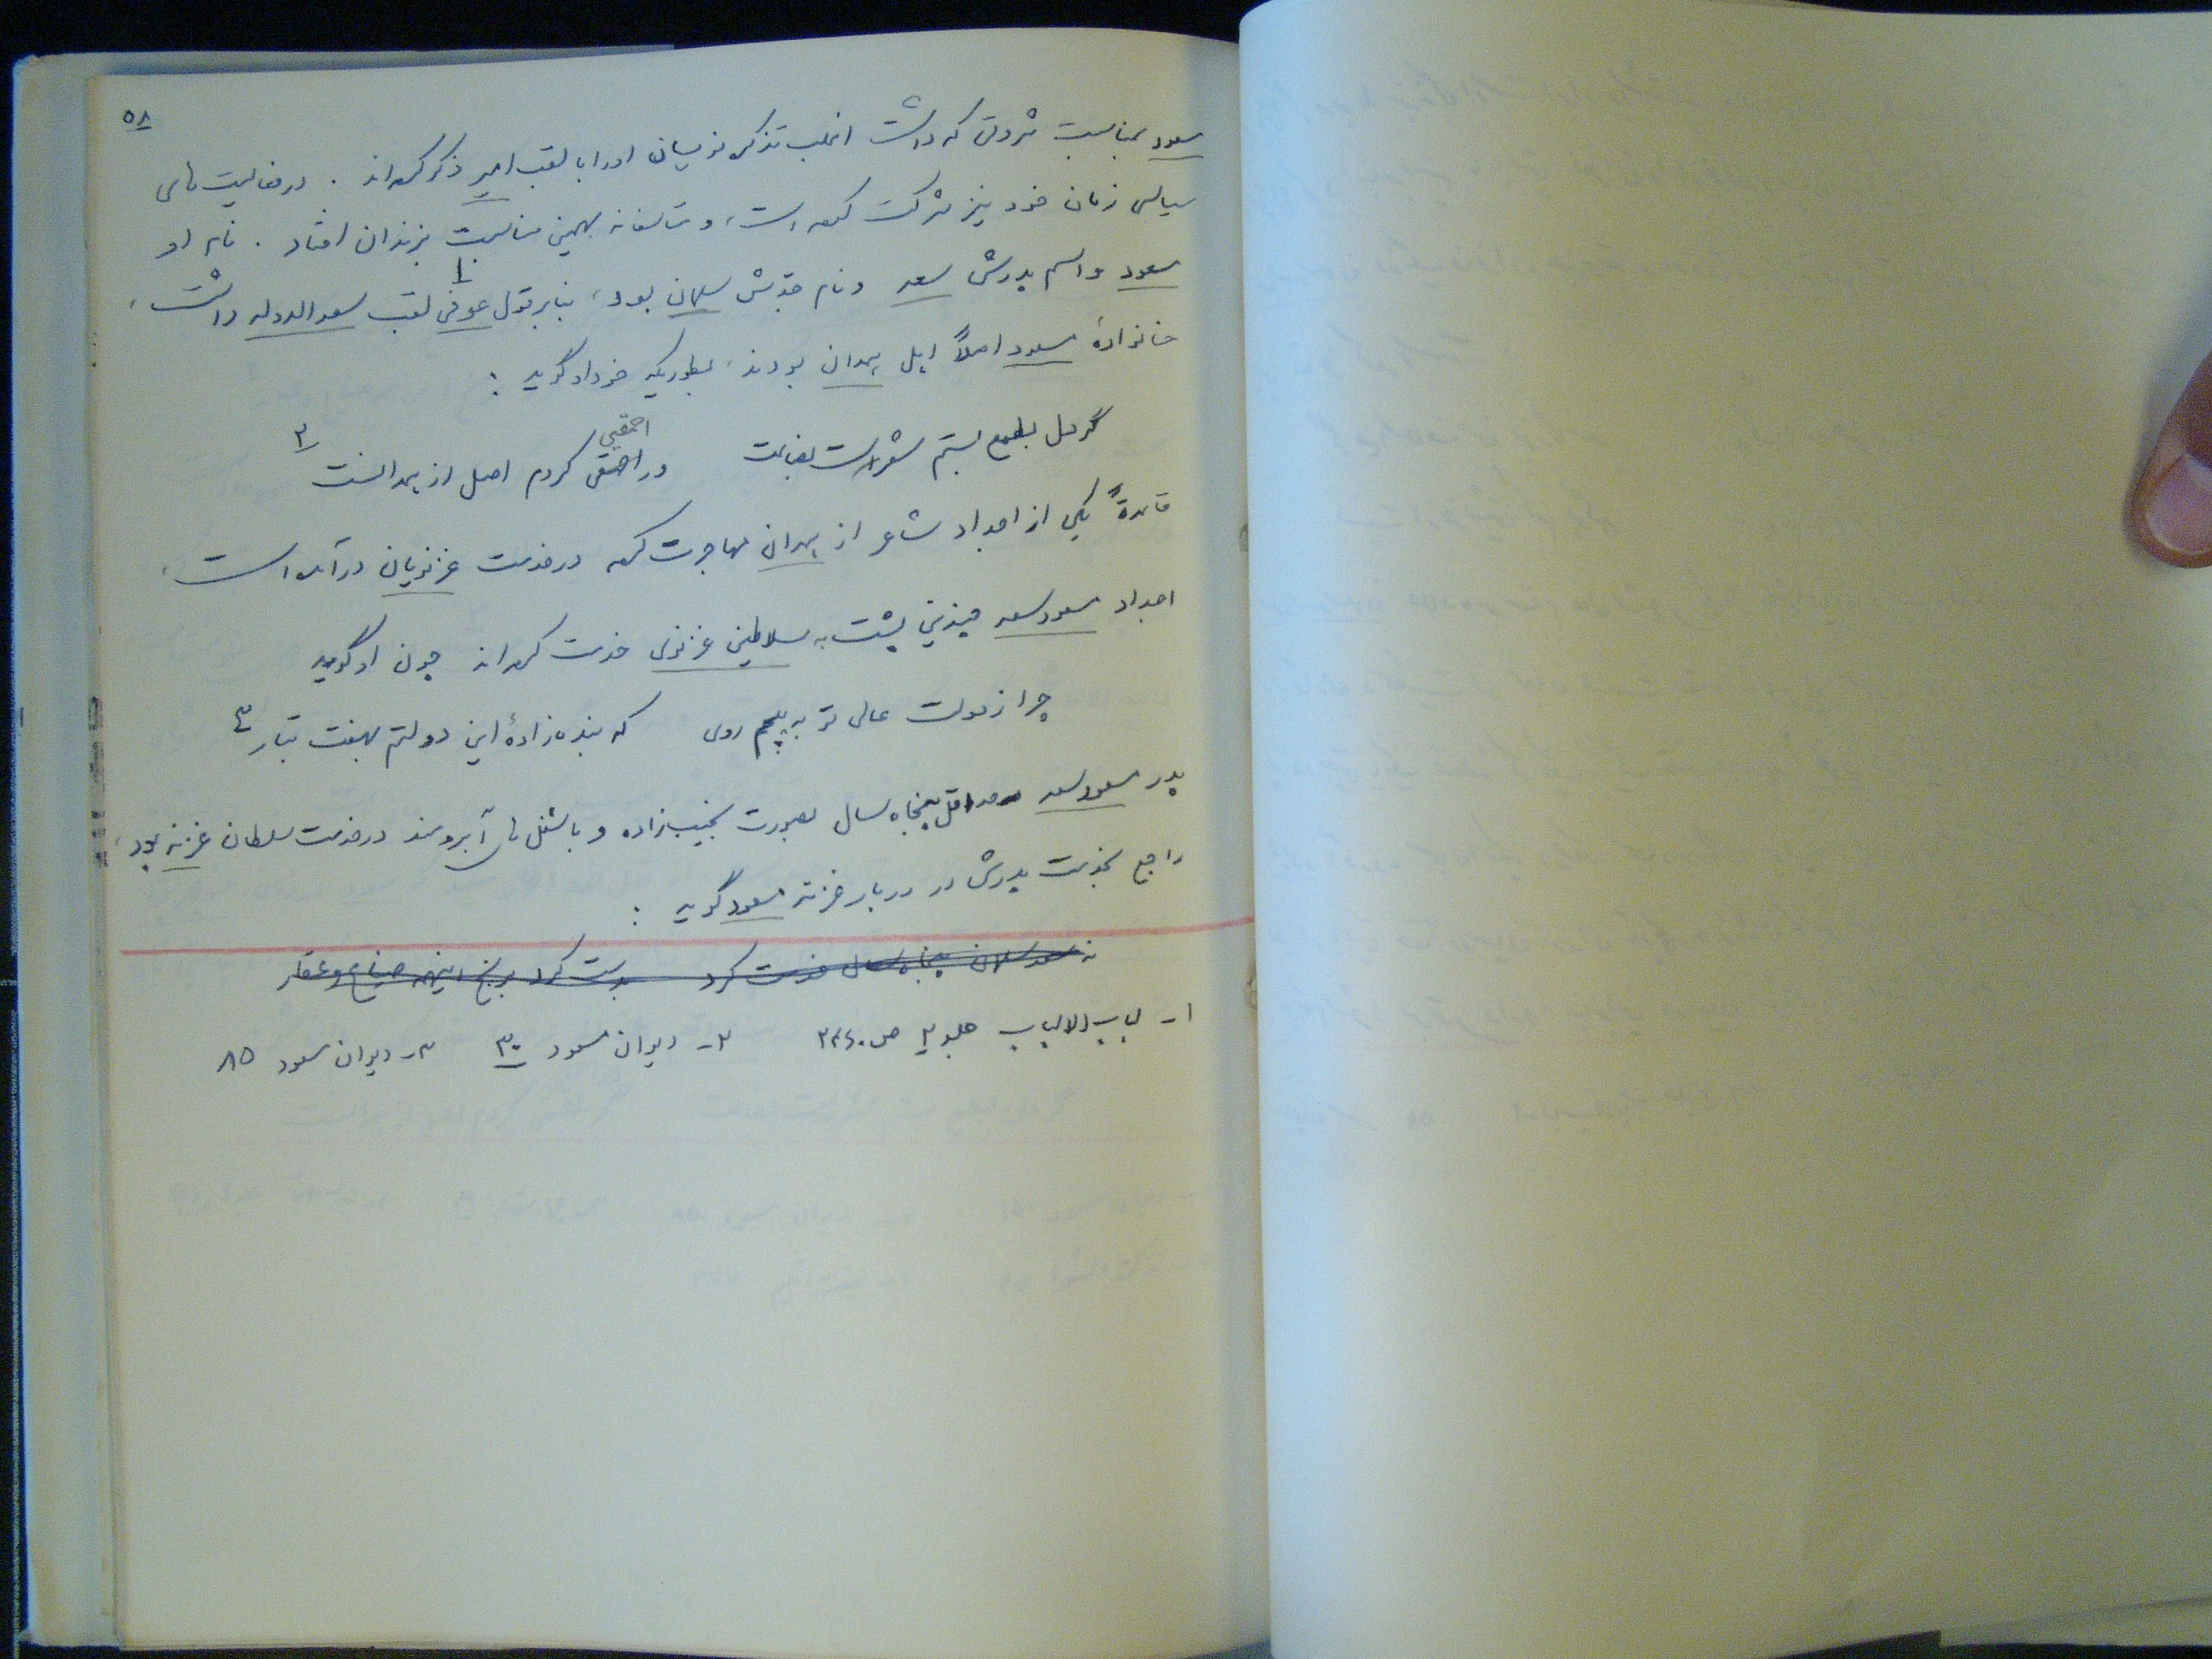 ۵۸
مسعود بمناسبت ثروتی که داشت اغلب تذکره نویسان او را با لقب امیر ذکر کرده اند . در فعالیت های
سیاسی زمان خود نیز شرکت کرده است، و متاسفانه بهمین مناسبت بزندان افتاد . نام او
مسعود و اسم پدرش سعد و نام جدش سلمان بود، بنابر قول عوفی لقب سعد الدوله داشت، ۱
خانوادهٔ مسعود اصلاً اهل همدان بودند، بطوریکه خود او گوید :
گر دل بطمع بستم شعر است بضاعت ور احمقی کردم اصل از همدانست ۲
احمقیی
قاعدةً یکی از اجداد شاعر از همدان مهاجرت کرده در خدمت غزنویان در آمده است،
اجداد مسعود سعد چندین پشت به سلاطین غزنوی خدمت کرده اند چون او گوید
چرا ز دولت عالی تو به پیچم روی که بنده زادهٔ این دولتم بهفت تبار ۳
پدر مسعود سعد حداقل پنجاه سال بصورت نجیب زاده و با شغل های آبرومند در خدمت سلطان غزنه بود،
راجع بخدمت پدرش در دربار غزنه مسعود گوید :
نه سعد سلمان پنجاه سال خدمت کرد بدست کرد برنج اینهمه ضیاع و عقار
۱- لباب الالباب جلد ۲ ص ۲۴۶۰ ۲- دیوان مسعود ۳۰ ۳- دیوان مسعود ۸۵